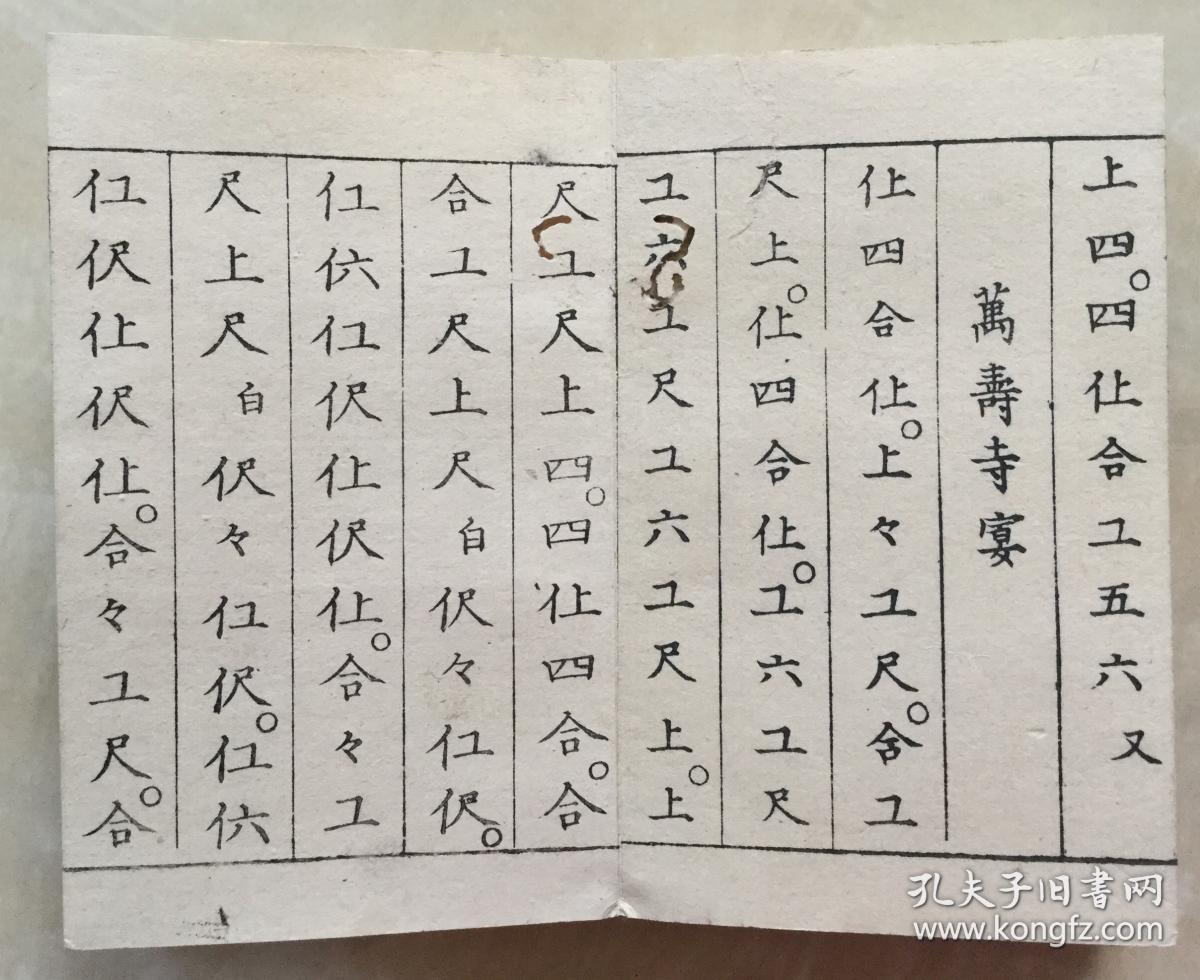 上四。四仩合工五六又
萬壽寺宴
仩四合仩。上々工尺。合工
尺上。仩四合仩。工六工尺
工六工尺工六工尺上。上
尺工尺上四。四仩四合。合
合工尺上尺自伬々仜伬。
仜亻六仜伬仩伬仩。合々工
尺上尺自伬々仜伬。仜亻六
仜伬仩伬仩。合々工尺。合
孔夫子旧书网
www.kongfz.com